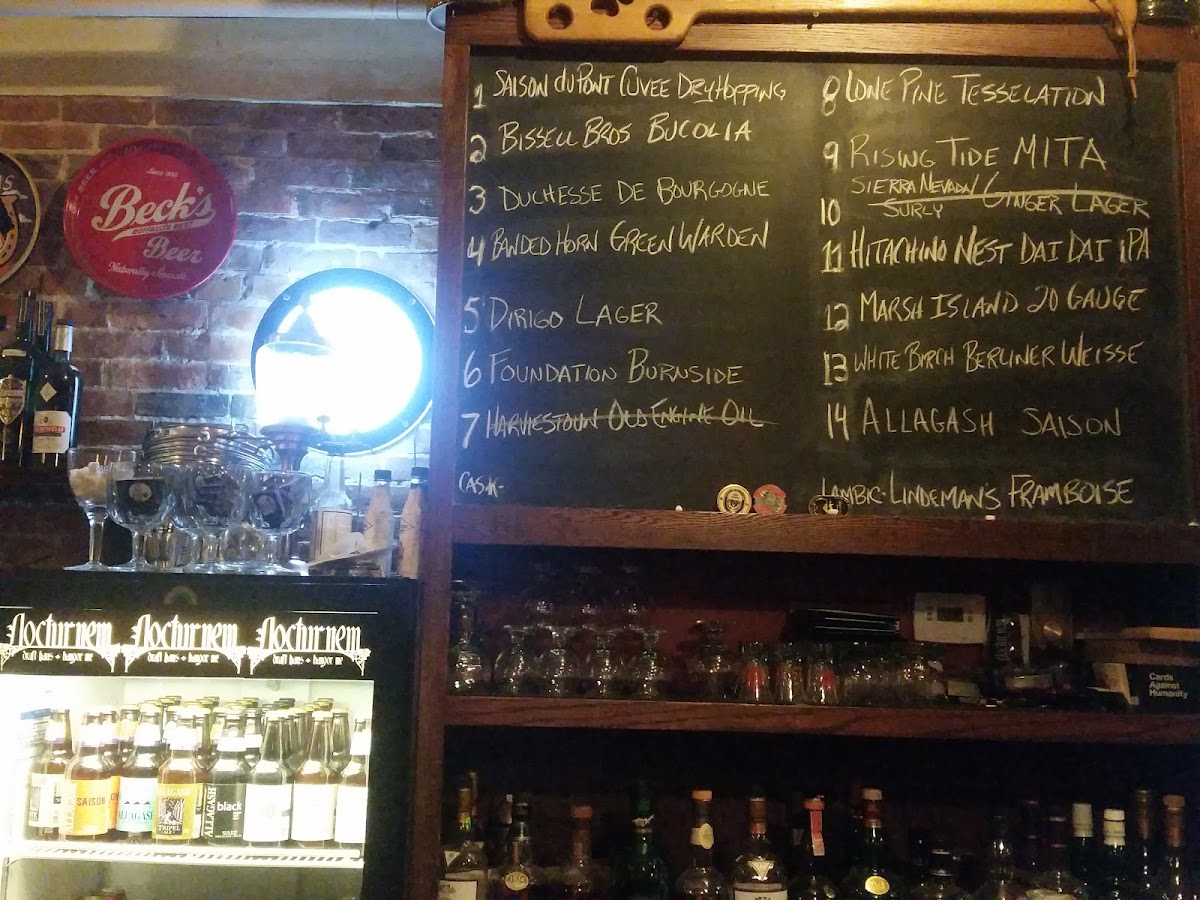 1 SAISON duPONT CUVEE DRYHOPPING
2 BISSELL BROS BUCOLIA
3 DUCHESSE DE BOURGOGNE
4 BANDED HORN GREEN WARDEN
5 DIRIGO LAGER
6 FOUNDATION BURNSIDE
7 HARVIESTOUN OLD ENGINE OIL
CASK-
8 LONE PINE TESSELATION
9 RISING TIDE MITA
SIERRA NEVADA GINGER LAGER
10 SURLY
11 HITACHINO NEST DAI DAI iPA
12 MARSH ISLAND 20 GAUGE
13 WHITE BIRCH BERLINER WEISSE
14 ALLAGASH SAISON
LAMBIC-LINDEMAN'S FRAMBOISE
Beck's
Beer
Naturally Smooth
Nocturnem Nocturnem Nocturnem
draft haus + bangor me draft haus + bangor me draft haus + bangor me
SAISON
ALLAGASH
ALLAGASH
TRIPEL
ALLAGASH
black
Cards
Against
Humanity